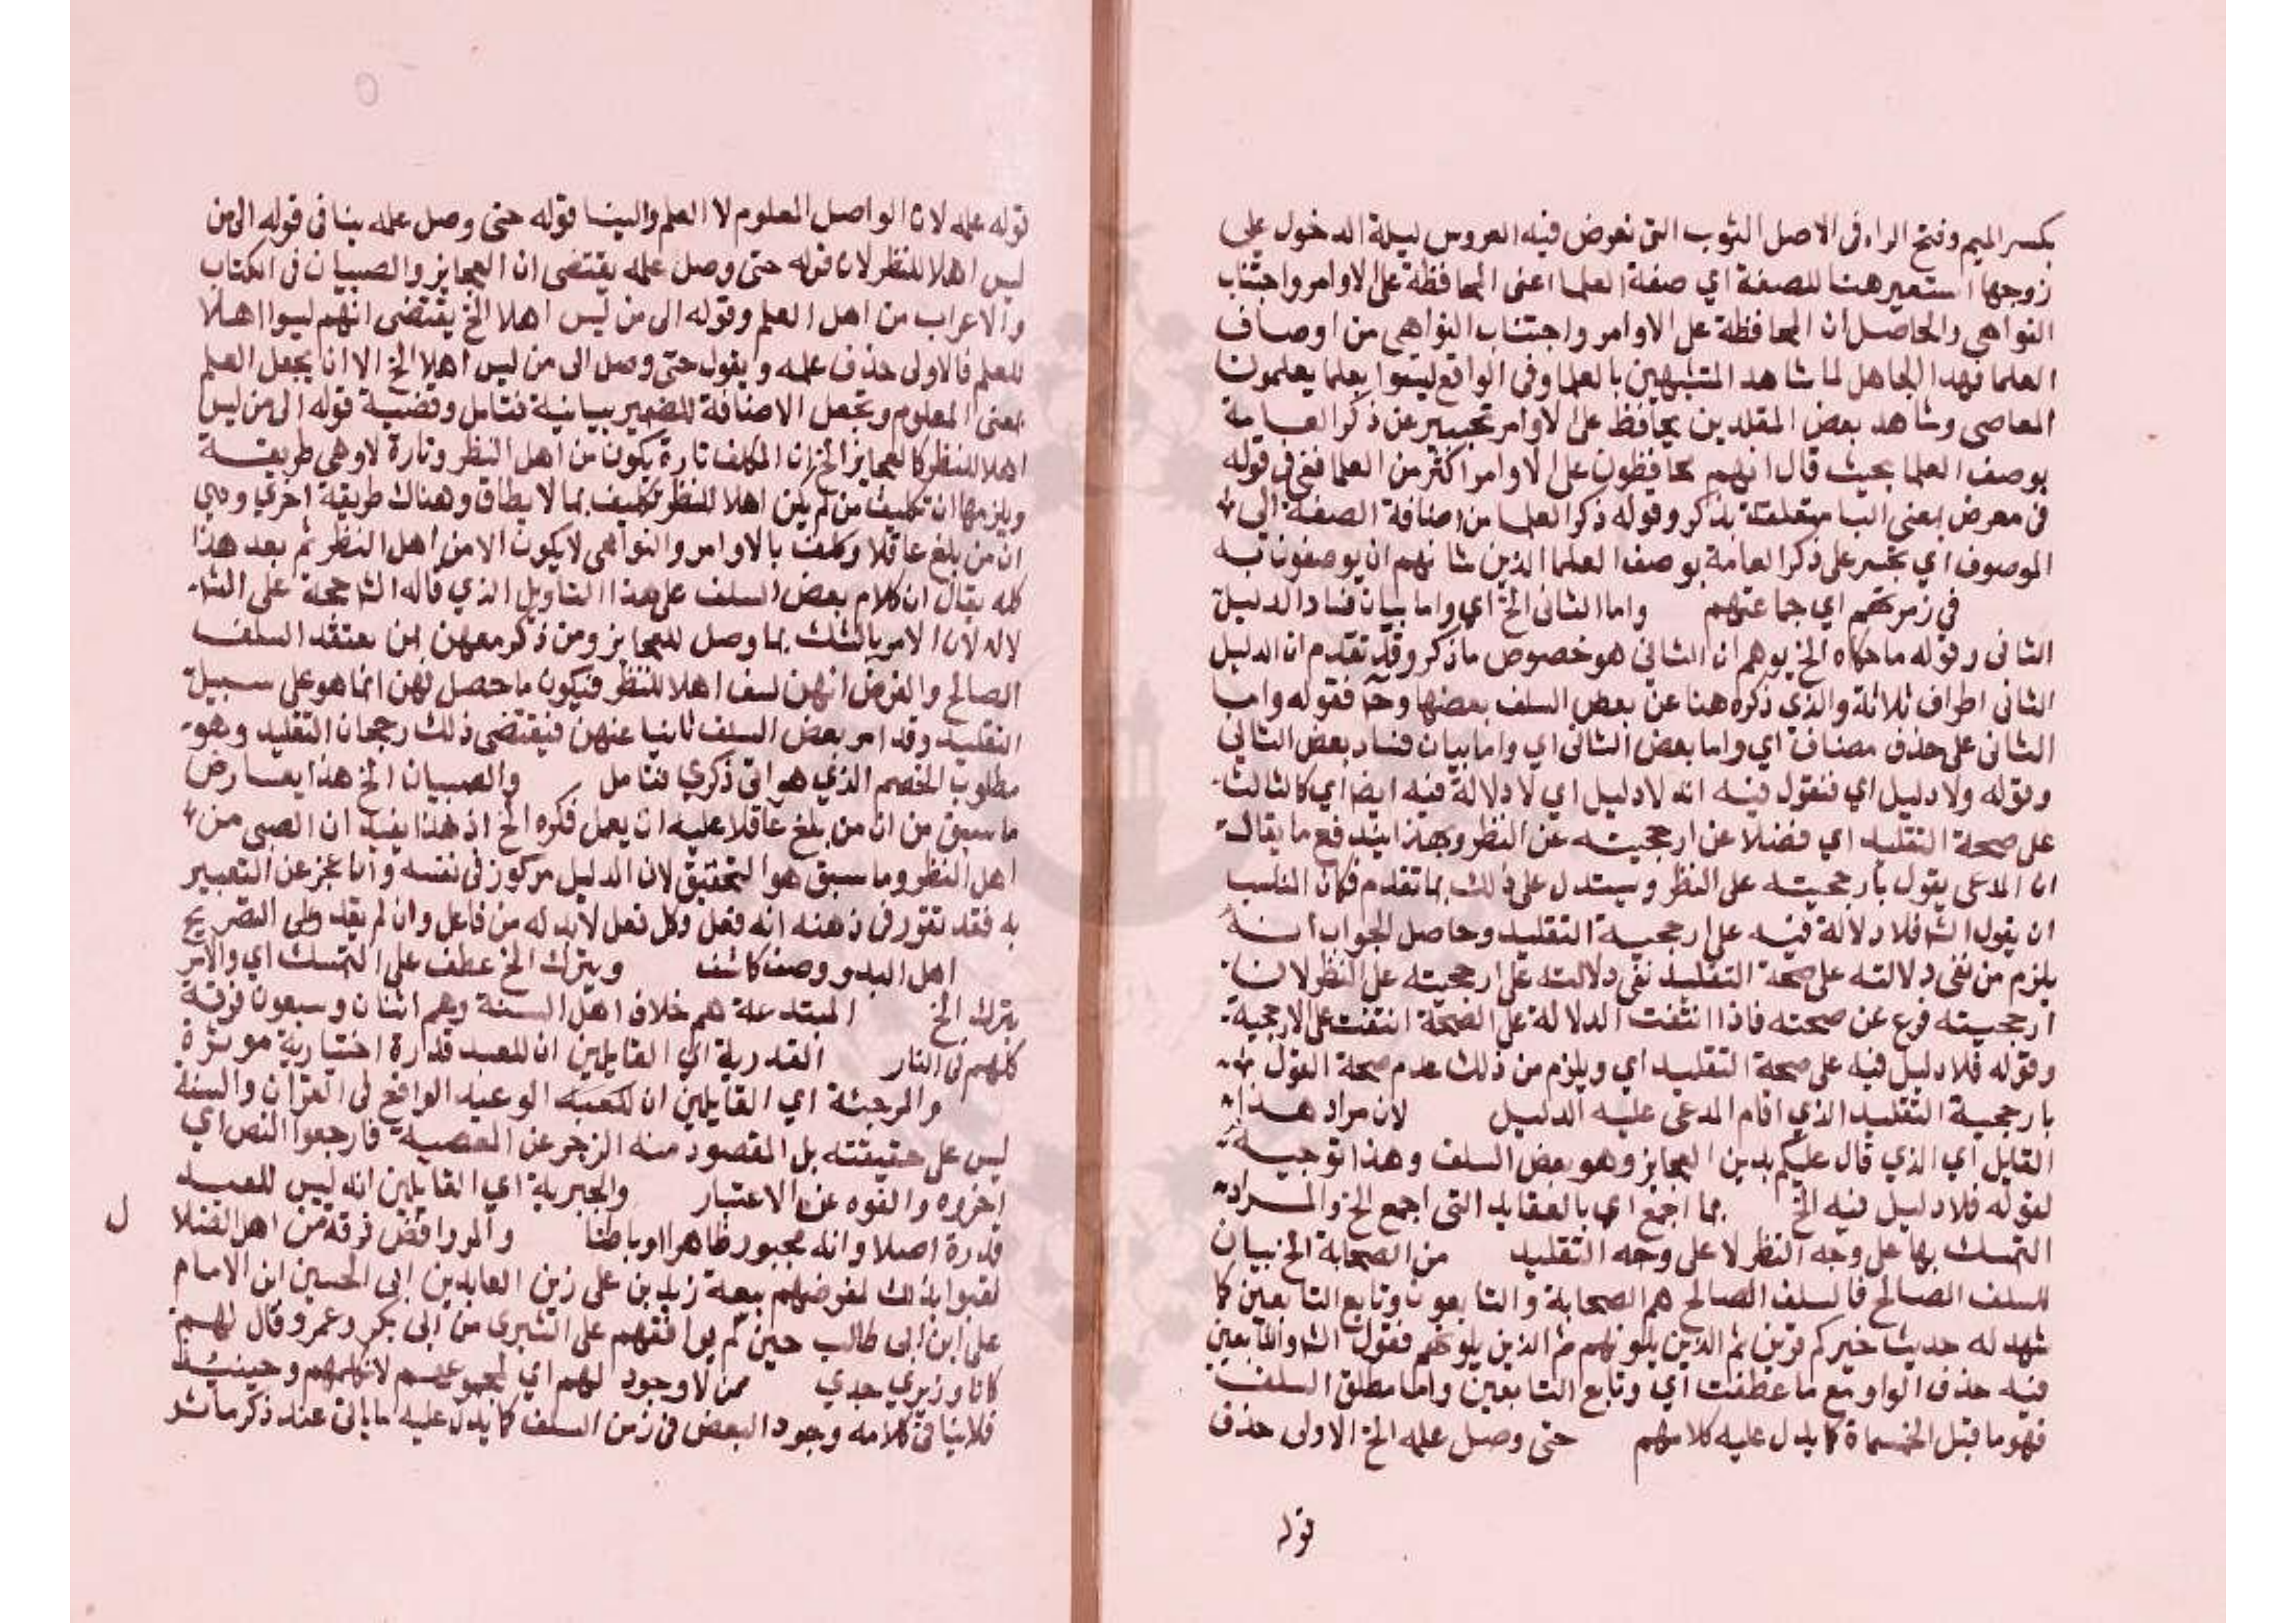 بكسر الميم وفتح الراء في الاصل الثوب التي تعرض فيه العروس ليلة الدخول على
زوجها استعير هنا للصفة اي صفة العلما اعني المحافظة على الاوامر واجتناب
النواهي والحاصل ان المحافظة على الاوامر واجتناب النواهي من اوصاف
العلما فهذا الجاهل لما شاهد المتشبهين بالعلما وفي الواقع ليسوا بعلما يعلمون
المعاصي وشاهد بعض المقلدين يحافظ على الاوامر تجسر عن ذكر العامة
بوصف العلما بحيث قال انهم يحافظون على الاوامر اكثر من العلما ففي في قوله
في معرض بمعنى البا متعلقة بذكر وقوله ذكر العلما من اضافة الصفة الى
الموصوف اي تجسر على ذكر العامة بوصف العلما الذين شانهم ان يوصفون به
في زمرتهم اي جماعتهم واما الثاني الخ اي واما بيان فساد الدليل
الثاني وقوله ما حكاه الخ يوهم ان الثاني هو خصوص ما ذكر وقد تقدم ان الدليل
الثاني اطراف ثلاثة والذي ذكره هنا عن بعض السلف بعضها وح فقوله واما
الثاني على حذف مضاف اي واما بعض الثاني اي واما بيان فساد بعض الثاني
وقوله ولا دليل اي فنقول فيه انه لا دليل اي لا دلالة فيه ايضا اي كالثالث
على صحة التقليد اي فضلا عن ارجحيته عن النظر وبهذا يندفع ما يقال
ان المدعي يقول بارجحيته على النظر ويستدل على ذلك بما تقدم فكان المناسب
ان يقول الش فلا دلالة فيه على ارجحية التقليد وحاصل الجواب انه
يلزم من نفي دلالته على صحة التقليد نفي دلالته على ارجحيته على النظر لان
ارجحيته فرع عن صحته فاذا انتفت الدلالة على الصحة انتفت على الارجحية
وقوله فلا دليل فيه على صحة التقليد اي ويلزم من ذلك عدم صحة القول
بارجحية التقليد الذي اقام المدعي عليه الدليل لان مراد هذا
القايل اي الذي قال عليكم بدين العجايز وهو بعض السلف وهذا توجيه
لقوله فلا دليل فيه الخ بما اجمع اي بالعقايد التي اجمع الخ والمراد
التمسك بها على وجه النظر لا على وجه التقليد من الصحابة الخ بيان
للسلف الصالح فالسلف الصالح هم الصحابة والتابعون وتابع التابعين كما
شهد له حديث خيركم قرني ثم الذين يلونهم ثم الذين يلونهم فقول الش والتابعين
فيه حذف الواو مع ما عطفت اي وتابع التابعين واما مطلق السلف
فهو ما قبل الخمسماة كما يدل عليه كلامهم حتى وصل علمه الخ الاولى حذف
قوله
قوله علمه لان الواصل المعلوم لا العلم وايضا قوله حتى وصل علمه ينافي قوله الى من
ليس اهلا للنظر لان قوله حتى وصل علمه يقتضي ان العجايز والصبيان في الكتاب
والاعراب من اهل العلم وقوله الى من ليس اهلا الخ يقتضي انهم ليسوا اهلا
للعلم فالاولى حذف علمه ويقول حتى وصل الى من ليس اهلا الخ الا ان يجعل العلم
بمعنى المعلوم وتجعل الاضافة للضمير بيانية فتامل وقضية قوله الى من ليس
اهلا للنظر كالعجايز الخ ان المكلف تارة يكون من اهل النظر وتارة لا وهي طريقة
ويلزمها ان تكليف من لم يكن اهلا للنظر تكليف بما لا يطاق وهناك طريقة اخري وهي
ان من بلغ عاقلا وكلف بالاوامر والنواهي لا يكون الا من اهل النظر ثم بعد هذا
كله يقال ان كلام بعض السلف على هذا التاويل الذي قاله الش حجة على الش
لا له لان الامر بالتمسك بما وصل للعجايز ومن ذكر معهن من معتقد السلف
الصالح والفرض انهن لسن اهلا للنظر فيكون ما حصل لهن انما هو على سبيل
التقليد وقد امر بعض السلف ثانيا عنهن فيقتضي ذلك رجحان التقليد وهو
مطلوب الخصم الذي هو ابن ذكري فتامل والصبيان الخ هذا يعارض
ما سبق من ان من بلغ عاقلا عليه ان يعمل فكره الخ اذ هذا يفيد ان الصبي من
اهل النظر وما سبق هو التحقيق لان الدليل مركوز في نفسه وان عجز عن التعبير
به فقد تقرر في ذهنه انه فعل وكل فعل لا بد له من فاعل وان لم يقدر على التصريح
اهل البدو وصف كاشف ويترك الخ عطف على التمسك اي والامر
بترك الخ المبتدعة هم خلاف اهل السنة وهم اثنان وسبعون فرقة
كلهم في النار القدرية اي القايلين ان للعبد قدرة اختيارية موثرة
والمرجئة اي القايلين ان الوعيد الواقع في القران والسنة
ليس على حقيقته بل المقصود منه الزجر عن المعصية فارجعوا النص اي
اخروه والغوه عن الاعتبار والجبرية اي القايلين انه ليس للعبد
قدرة اصلا وانه مجبور ظاهرا وباطنا والروافض فرقة من اهل الضلا ل
لقبوا بذلك لفرضهم بيعة زيد بن علي زين العابدين ابي الحسين ابن الامام
علي ابن ابي طالب حين لم يوافقهم على التبري من ابي بكر وعمر وقال لهم
كانا وزيري جدي ممن لا وجود لهم اي لمجموعهم لا كلهم وحينئذ
فلا ينافي كلامه وجود البعض في زمن السلف كما يدل عليه ما ياتي عند ذكر ما نشر